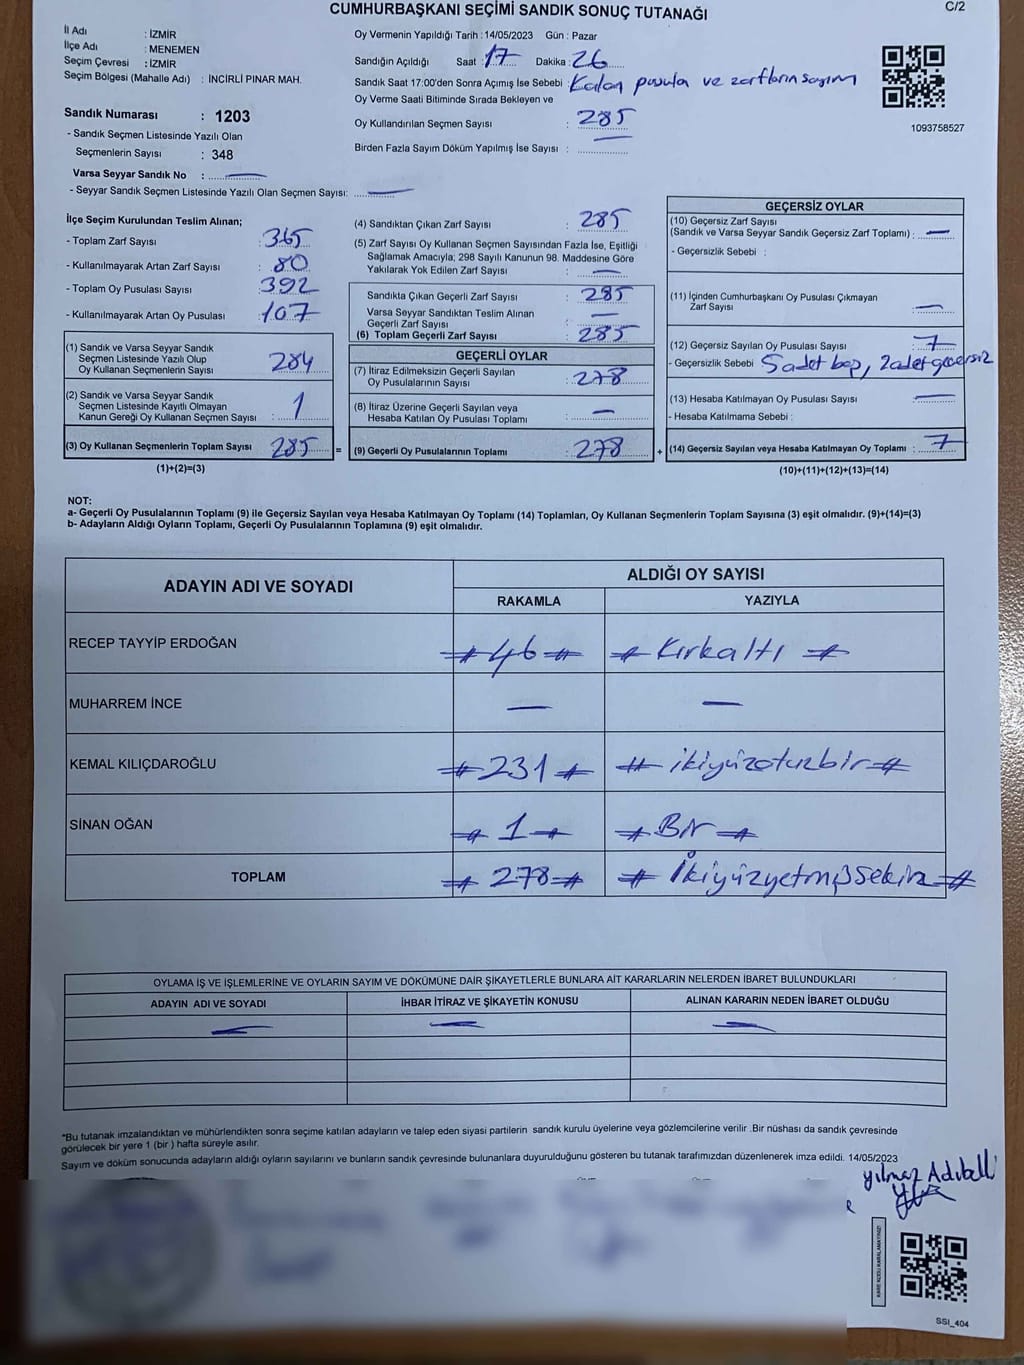 CUMHURBAŞKANI SEÇİMİ SANDIK SONUÇ TUTANAĞI
C/2
İl Adı : İZMİR
İlçe Adı : MENEMEN
Seçim Çevresi : İZMİR
Seçim Bölgesi (Mahalle Adı) : İNCİRLİ PINAR MAH.
Sandık Numarası : 1203
- Sandık Seçmen Listesinde Yazılı Olan
Seçmenlerin Sayısı : 348
Varsa Seyyar Sandık No : —
- Seyyar Sandık Seçmen Listesinde Yazılı Olan Seçmen Sayısı: —
Oy Vermenin Yapıldığı Tarih : 14/05/2023 Gün : Pazar
Sandığın Açıldığı Saat : 17 Dakika : 26
Sandık Saat 17:00'den Sonra Açımış İse Sebebi : Kalan pusula ve zarfların sayım
Oy Verme Saati Bitiminde Sırada Bekleyen ve
Oy Kullandırılan Seçmen Sayısı : 285
Birden Fazla Sayım Döküm Yapılmış İse Sayısı :
1093758527
İlçe Seçim Kurulundan Teslim Alınan;
- Toplam Zarf Sayısı : 365
- Kullanılmayarak Artan Zarf Sayısı : 80
- Toplam Oy Pusulası Sayısı : 392
- Kullanılmayarak Artan Oy Pusulası : 107
(1) Sandık ve Varsa Seyyar Sandık
Seçmen Listesinde Yazılı Olup
Oy Kullanan Seçmenlerin Sayısı : 284
(2) Sandık ve Varsa Seyyar Sandık
Seçmen Listesinde Kayıtlı Olmayan
Kanun Gereği Oy Kullanan Seçmen Sayısı : 1
(3) Oy Kullanan Seçmenlerin Toplam Sayısı : 285 =
(1)+(2)=(3)
(4) Sandıktan Çıkan Zarf Sayısı : 285
(5) Zarf Sayısı Oy Kullanan Seçmen Sayısından Fazla İse, Eşitliği
Sağlamak Amacıyla; 298 Sayılı Kanunun 98. Maddesine Göre
Yakılarak Yok Edilen Zarf Sayısı : —
Sandıkta Çıkan Geçerli Zarf Sayısı : 285
Varsa Seyyar Sandıktan Teslim Alınan
Geçerli Zarf Sayısı : —
(6) Toplam Geçerli Zarf Sayısı : 285
GEÇERLİ OYLAR
(7) İtiraz Edilmeksizin Geçerli Sayılan
Oy Pusulalarının Sayısı : 278
(8) İtiraz Üzerine Geçerli Sayılan veya
Hesaba Katılan Oy Pusulası Toplamı : —
(9) Geçerli Oy Pusulalarının Toplamı : 278 +
GEÇERSİZ OYLAR
(10) Geçersiz Zarf Sayısı
(Sandık ve Varsa Seyyar Sandık Geçersiz Zarf Toplamı) : —
- Geçersizlik Sebebi :
(11) İçinden Cumhurbaşkanı Oy Pusulası Çıkmayan
Zarf Sayısı : —
(12) Geçersiz Sayılan Oy Pusulası Sayısı : 7
- Geçersizlik Sebebi 5adet boş, 2adet geçersiz
(13) Hesaba Katılmayan Oy Pusulası Sayısı : —
- Hesaba Katılmama Sebebi :
(14) Geçersiz Sayılan veya Hesaba Katılmayan Oy Toplamı : 7
(10)+(11)+(12)+(13)=(14)
NOT:
a- Geçerli Oy Pusulalarının Toplamı (9) ile Geçersiz Sayılan veya Hesaba Katılmayan Oy Toplamı (14) Toplamları, Oy Kullanan Seçmenlerin Toplam Sayısına (3) eşit olmalıdır. (9)+(14)=(3)
b- Adayların Aldığı Oyların Toplamı, Geçerli Oy Pusulalarının Toplamına (9) eşit olmalıdır.
ADAYIN ADI VE SOYADI
ALDIĞI OY SAYISI
RAKAMLA YAZIYLA
RECEP TAYYİP ERDOĞAN #46# #Kırkaltı#
MUHARREM İNCE — —
KEMAL KILIÇDAROĞLU #231# #ikiyüzotuzbir#
SİNAN OĞAN #1# #Bir#
TOPLAM #278# #İkiyüzyetmişsekiz#
OYLAMA İŞ VE İŞLEMLERİNE VE OYLARIN SAYIM VE DÖKÜMÜNE DAİR ŞİKAYETLERLE BUNLARA AİT KARARLARIN NELERDEN İBARET BULUNDUKLARI
ADAYIN ADI VE SOYADI İHBAR İTİRAZ VE ŞİKAYETİN KONUSU ALINAN KARARIN NEDEN İBARET OLDUĞU
— — —
*Bu tutanak imzalandıktan ve mühürlendikten sonra seçime katılan adayların ve talep eden siyasi partilerin sandık kurulu üyelerine veya gözlemcilerine verilir .Bir nüshası da sandık çevresinde
görülecek bir yere 1 (bir ) hafta süreyle asılır.
Sayım ve döküm sonucunda adayların aldığı oyların sayılarını ve bunların sandık çevresinde bulunanlara duyurulduğunu gösteren bu tutanak tarafımızdan düzenlenerek imza edildi. 14/05/2023
Yılmaz Adıbelli
KARE KODU KARALAMAYINIZ!
SSI_404